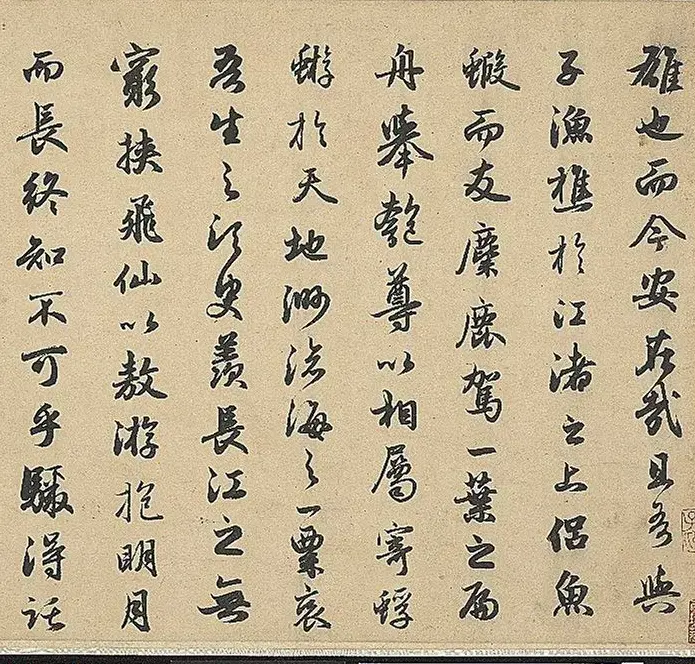 雄也而今安在哉且吾與
子漁樵於江渚之上侶魚
蝦而友麋鹿駕一葉之扁
舟舉匏尊以相屬寄蜉
蝣於天地渺滄海之一粟哀
吾生之須臾羨長江之無
窮挾飛仙以敖游抱明月
而長終知不可乎驟得託